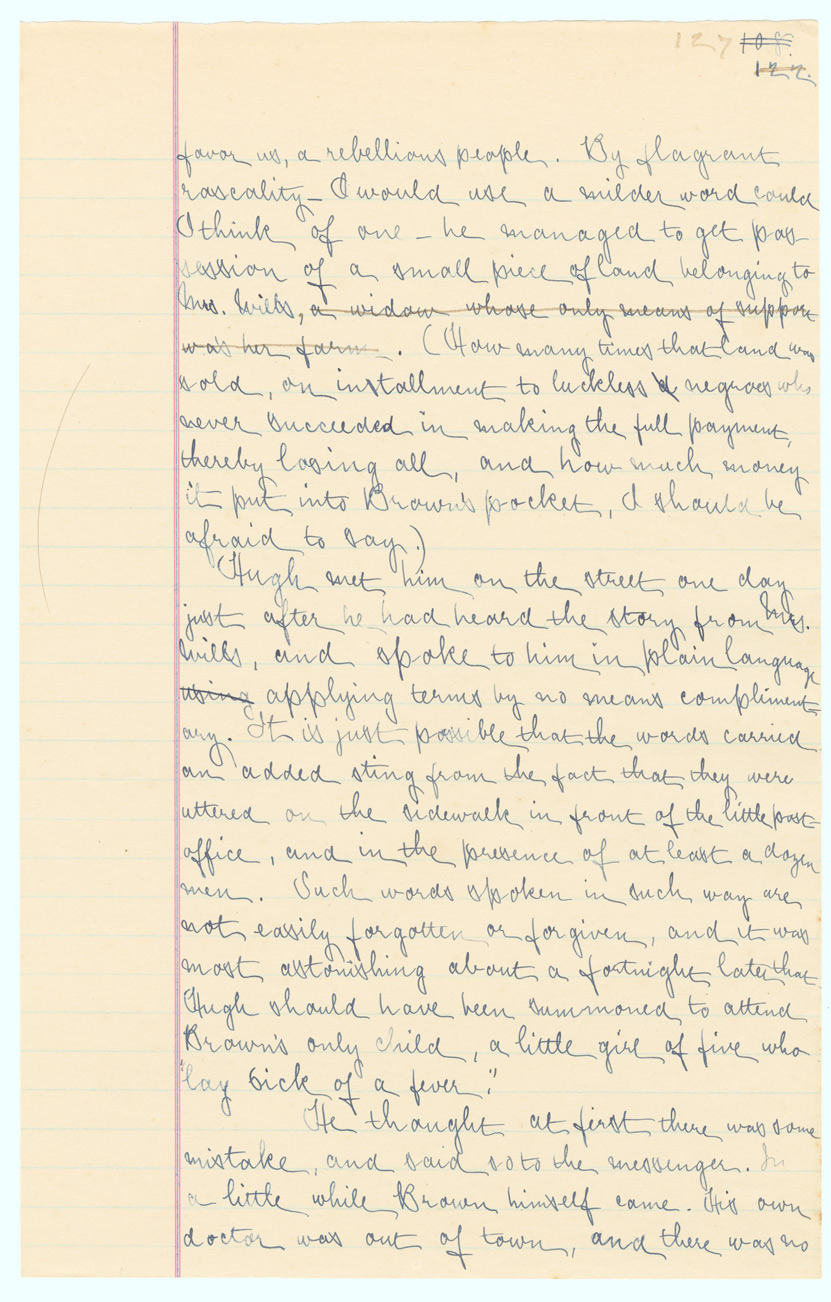 127 108.
122.
favor us, a rebellious people. By flagrant
rascality – I would use a milder word could
I think of one – he managed to get pos-
session of a small piece of land belonging to
Mrs. Wills, a widow whose only means of support
was her farm. (How many times that land was
sold, on installment to luckless negroes who
never succeeded in making the full payment,
thereby losing all, and how much money
it put into Brown's pocket, I should be
afraid to say.)
Hugh met him on the street one day
just after he had heard the story from Mrs.
Wills, and spoke to him in plain language
using applying terms by no means compliment-
ary. It is just possible that the words carried
an added sting from the fact that they were
uttered on the sidewalk in front of the little post-
office, and in the presence of at least a dozen
men. Such words spoken in such way are
not easily forgotten or forgiven, and it was
most astonishing about a fortnight later that
Hugh should have been summoned to attend
Brown's only child, a little girl of five who
"lay sick of a fever."
He thought at first there was some
mistake, and said so to the messenger. In
a little while Brown himself came. His own
doctor was out of town, and there was no